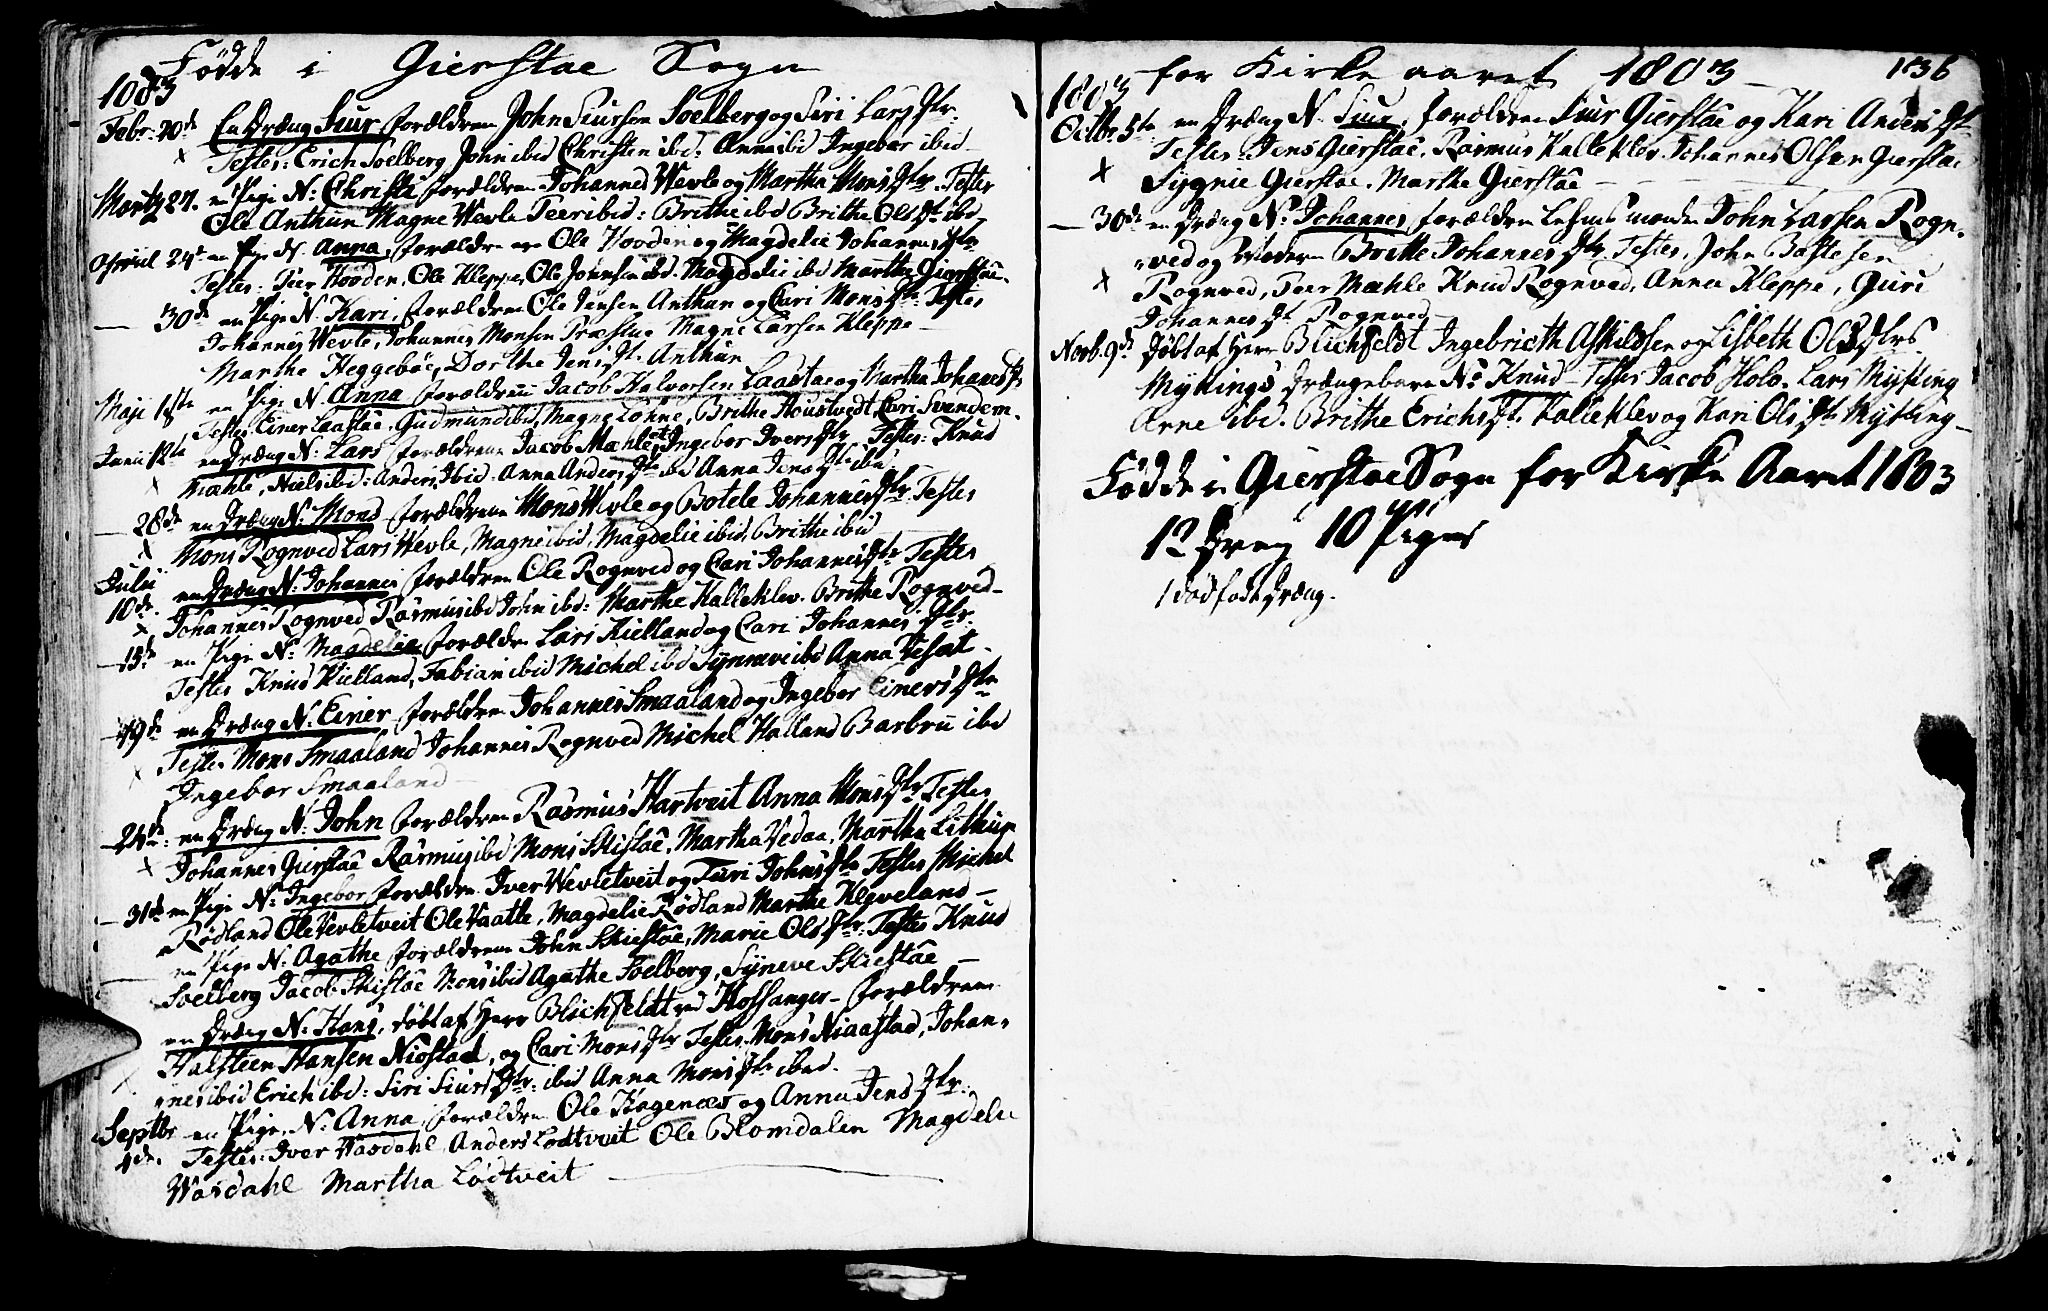 Fødde i Gierstae Sogn
1803
Febr: 20de En Dræng Siur forældren John Siursen Soelberg og Siri Lars Dtr.
Testes: Erich Soelberg John ibid Christen ibid: Anna ibid Ingebor ibid
Martz 27. en Pige N: Christi forældren Johannes Wevle og Martha Mons Dtr. Testes
Ole Anthun Magne Wevle Peer ibid: Brithe ibd Brithe Ols Dtr ibd
Apriil 24de en Pige N. Anna, forældre ere Ole Hooden og Magdelie Johannes Dtr
Testes. Hooden, Ole Kleppe, Ole Jonsen ibd. Magdelie ibd Martha Gierstae
30de en Pige N. Kari, forældren Ole Jensen Anthun og Cari Mons Dtr. Testes
Johannes Wevle, Johannes Monsen Præstue Magne Larsen Kleppe
Marthe Heggeböe, Dorthe Jens Dt. Anthun
Maji 1ste en Pige N. Anna forældren Jacob Halvorsen Laastae og Martha Johannes Dt
Testes Einer Laastae, Gudmund ibid, Magne Lønne, Brithe Houstvedt Cari Svendem.
Junii 12te en Dræng N: Lars forældren Jacob Mæhle et Ingebor Ivers Dtr. Testes: Knud
Mæhle, Niels ibid: Anders ibid. Anna Anders Dtr ibd Anna Jens Dtr ibid
28de en Dræng N: Mons forældren Mons Wevle og Botele Johannes Dtr. Testes
Mons Rognved Lars Wevle, Magne ibid, Magdelie ibid, Brithe ibid
Julii en Dræng N: Johannes forældren Ole Rognved og Cari Johannes Dtr Testes
10de. Johannes Rognved Rasmus ibd John ibd: Marthe Kalleklev. Brithe Rognved
15de en Pige N: Magdelie forældren Lars Kielland og Cari Johannes Dtr.
Testes Knud Kielland, Fabian ibid Michel ibd Synneve ibd Anna
19de en Dræng N: Einer forældren Johannes Smaaland og Ingebor Einers Dtr
Testes Mons Smaaland Johannes Rognved Michel Halland Barbru ibd
Ingebor Smaaland
24de: en Dræng N: John forældren Rasmus Hartveit Anna Mons Dtr Testes
Johannes Gierstae Rasmus ibd Mons Skistae, Martha Vedaa, Martha
31de en Pige N: Ingebor forældren Iver Wevletveit og Turi Johns Dtr Testes Michel
Rødland Ole Vevletveit Ole Vaatle, Magdelie Rødland Marthe Kleveland
en Pige N: Agathe forældren John Skiestae, Marie Ols Dtr: Testes Knud
Soelberg Jacob Skistae Mons ibid Agathe Soelberg, Syneve Skiestae
en Dræng N: Hans, døbt af Herr Blichfeldt ved Hossanger forældren
Halsteen Hansen Niostad, og Cari Mons Dtr Testes Mons Niaastad, Johan-
nes ibid Erich ibd: Siri Siurs Dtr: ibid Anna Mons Dtr ibid.
Septbr en Pige N: Anna, forældren Ole Hagenæs og Anna Jens Dtr:
4de. Testes: Iver Wasdahl Anders Lødtveit Ole Blomdalen Magdelie
Wasdahl Martha Lødtveit
for Kirke aaret 1803 136
1803
Octbr 5te en Dræng N. Siur, forældren Siur Gierstae og Kari Anders Dtr
Testes Jens Gierstae, Rasmus Kalleklev Johannes Olsen Gierstae
Sygnie Gierstae. Marthe Gierstae
30de en Dræng N: Johannes forældren John Larsen Rogn-
ved og Moderen Brithe Johannes Dtr. Testes, John Bastesen
Rognved, Peer Mæhle Knud Rognved, Anna Kleppe, Guri
Johannes Dt. Rognved
Novb. 9de døbt af Herr Blichfeldt Ingebricth Askildsen og Lisbeth Ols Dtrs
Myhings Drængebarn N: Knud Testes Jacob Holo. Lars Myhing
Arne ibd. Brithe Erichs Dt. Kalleklev og Kari Ols Dtr Myhing
Fødde i Gierstae Sogn for Kirke Aaret 1803
12 Dreng 10 Piger
1 dødføde Dræng.